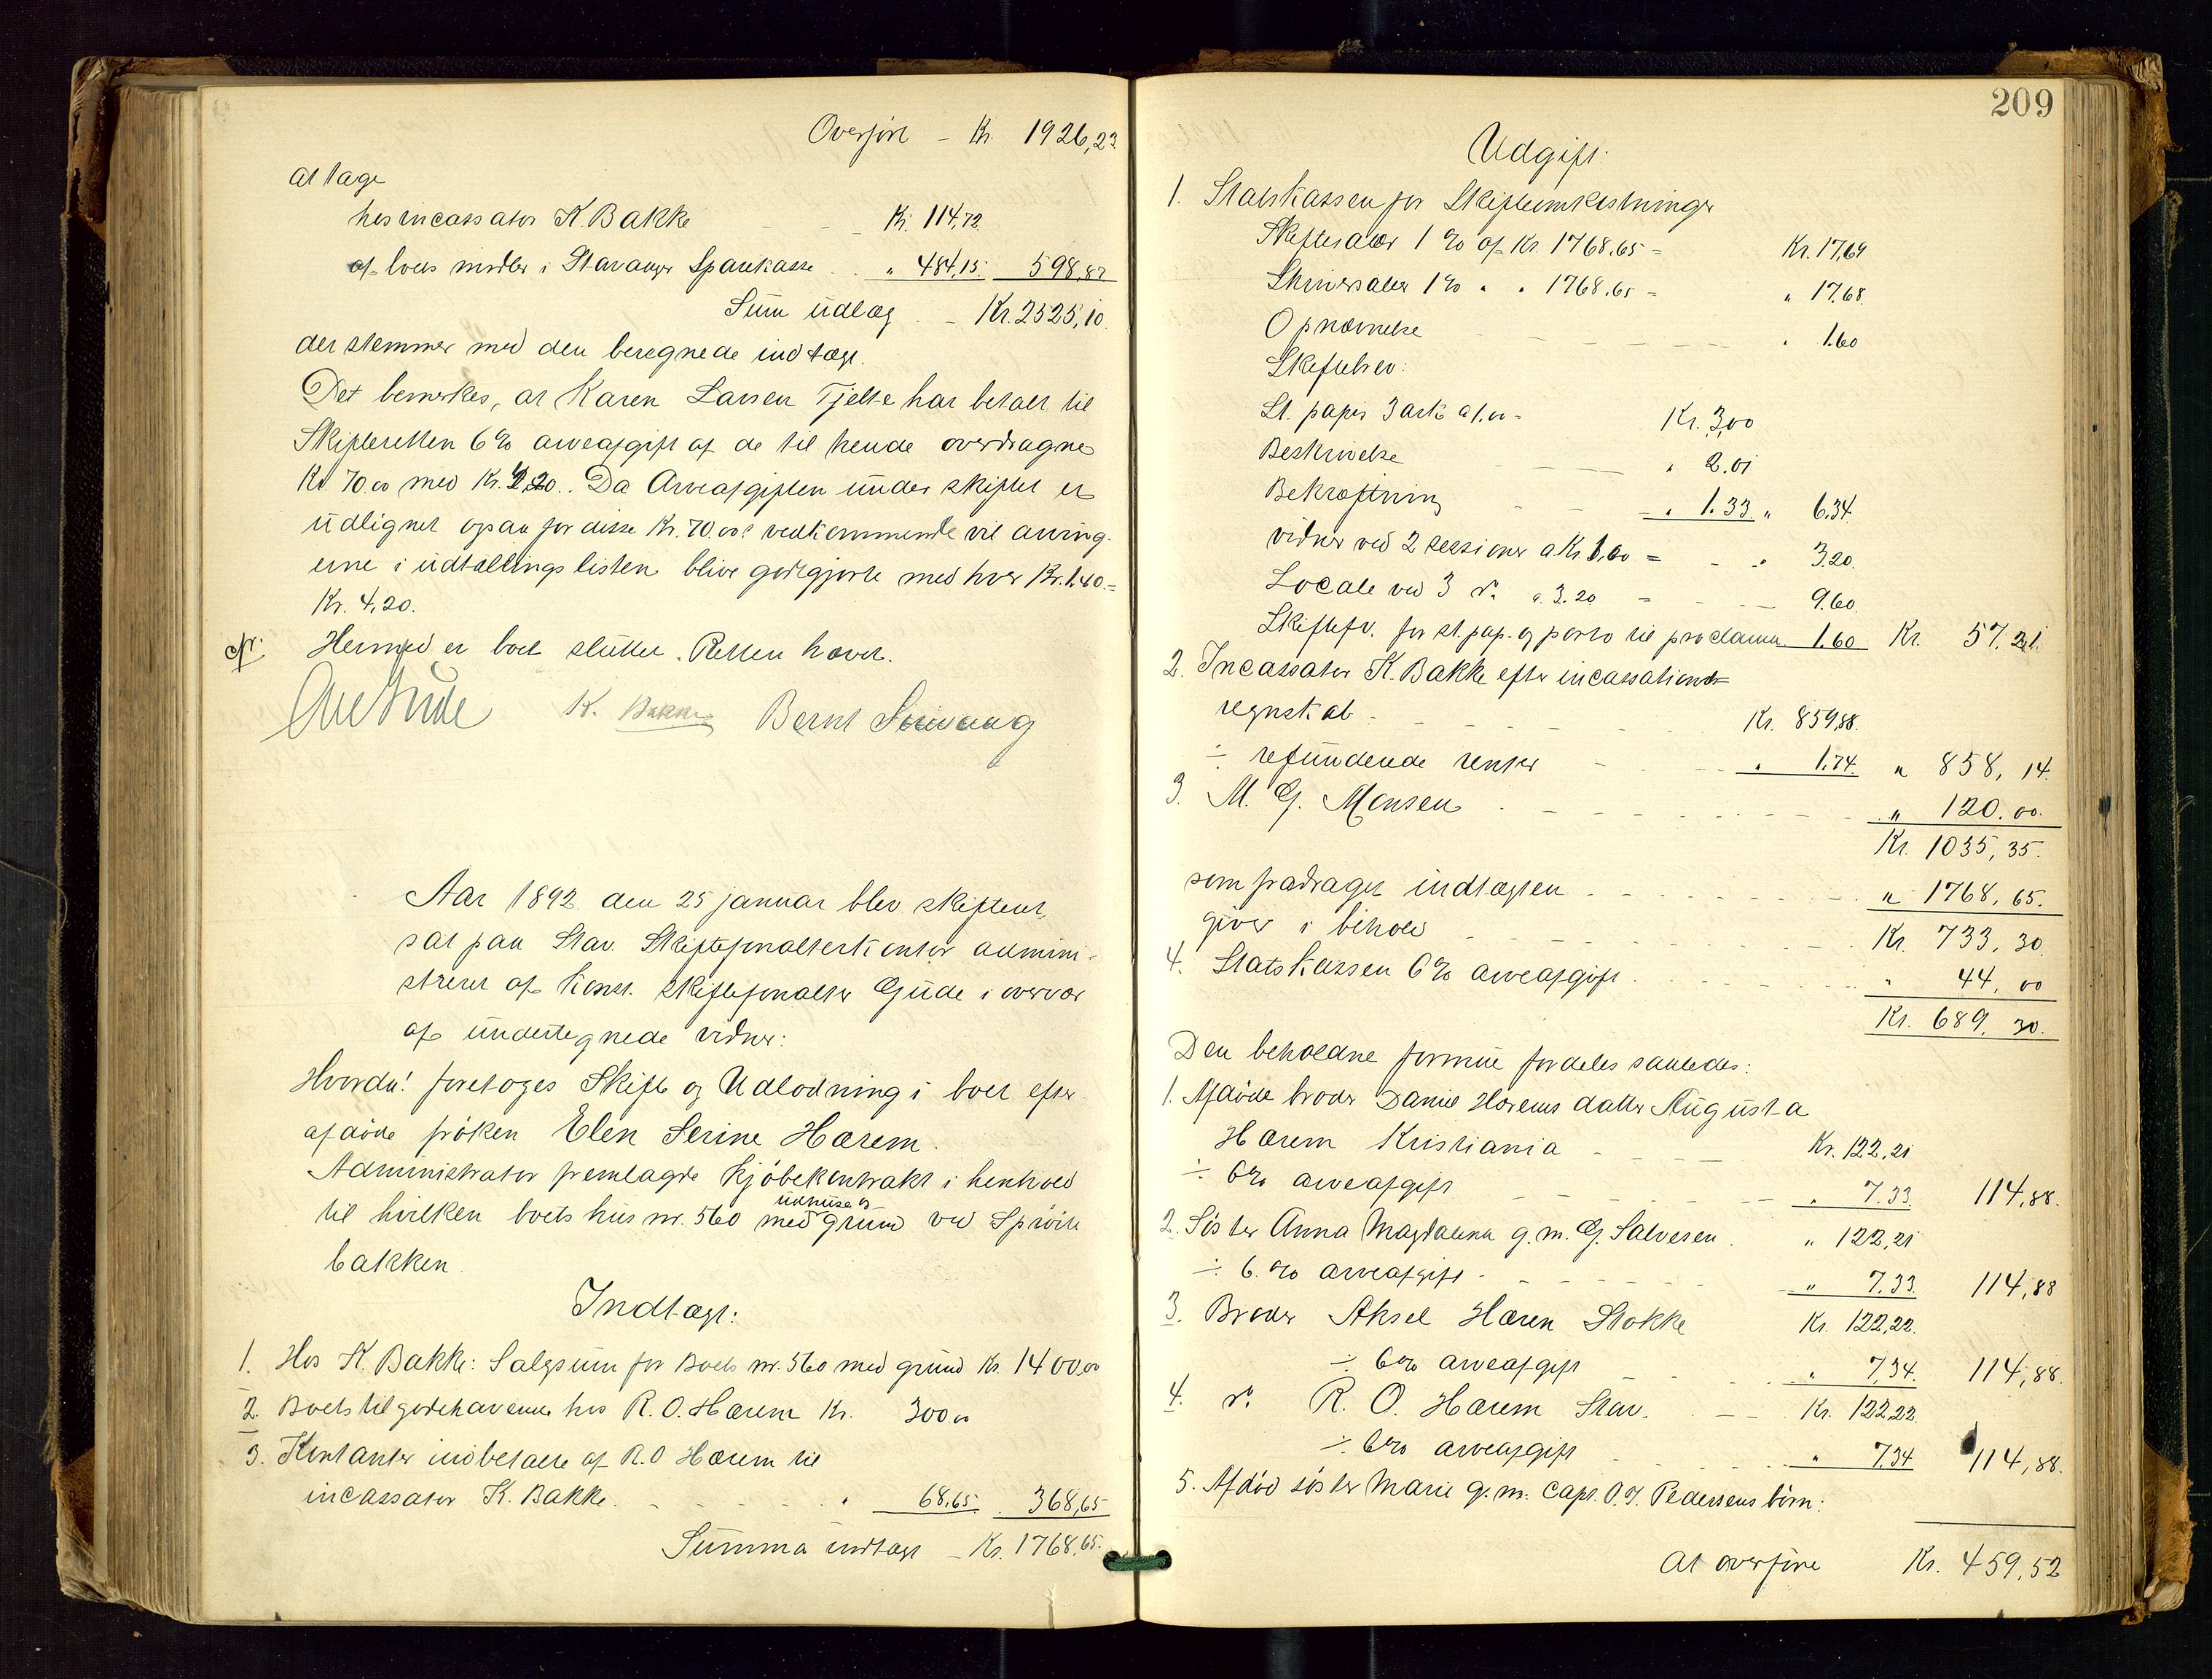 Overført – Kr. 1926,23
at tage
hos incassator K. Bakke – – Kr. 114,72
af boets midler i Stavanger Sparekasse . . " 484,15. 598,87
Sum udlæg . – Kr. 2525,10.
der stemmer med den beregnede indtægt.
Det bemerkes, at Karen Larsen Tjelte har betalt til
Skifteretten 6% arveafgift af de til hende overdragne
Kr. 70.00 med Kr. 4,20. Da Arveafgiften under skiftet er
udlignet ogsaa for disse Kr. 70.00s vedkommende vil arving-
erne i udtællingslisten blive godtgjorte med hver Kr. 1.40 =
Kr. 4,20.
cfr. Hermed er boet sluttet. Retten hævet.
K. Bakke Bernt
Aar 1892 den 25 januar blev skifteret
sat paa Stav. Skifteforvalterkontor admini-
streret af konst. skifteforvalter Gude i overvær
af undertegnede vidner:
Hvorda! foretoges Skifte og Udlodning i boet efter
afdøde frøken Elen Serine Hærem.
Administrator fremlagde kjøbekontrakt i henhold
udhuse og
til hvilken boets hus nr. 560 med grund ved Sprøite
bakken
Indtægt:
1. Hos K. Bakke: Salgssum for Boets nr. 560 med grund Kr. 1400,00
2. Boets tilgodehavende hos R. O. Hærem Kr. 300 00
3. Kontanter indbetalte af R. O Hærem til
incassator K. Bakke. – – – – " 68,65 368,65
Summa indtægt – Kr. 1768,65.
209
Udgift:
1. Statskassen for Skifteomkostninger
Skiftesalær 1% af Kr. 1768,65 = Kr. 17,69
Skriversalær 1% " " 1768.65 = " 17.68.
Opnævnelse – – – – – " 1.60
Skiftebrev:
St. papir 3 ark a 1.00 = Kr. 3,00
Beskrivelse – – – " 2.01
Bekræftning – – " 1.33 " 6.34
vidner ved 2 sessioner a Kr. 1,60 = – " 3.20.
Locale ved 3 do a 3.20 = – – 9.60.
Skiftefv. for st. pap. og porto til proclama 1.60 Kr. 57.21.
2. Incassator K. Bakke efter incassations=
regnskab – – – – – Kr. 859,88.
÷ refunderede renter – – – " 1.74. " 858, 14.
3. M. G. Monsen – – – – – – " 120.00.
Kr. 1035, 35.
som fradraget indtægten – – – – – – " 1768, 65.
giver i behold – – – – – – Kr. 733, 30.
4. Statskassen 6% arveafgift – – – – " 44, 00
Kr. 689, 30.
Den beholdne formue fordeles saaledes:
1. Afdøde broder Daniel Hærems datter Augusta
Hærem Kristiania – – – – Kr. 122,21
÷ 6% arveafgift – – – – – – " 7.33 114,88.
2. Søster Anna Magdalena g. m. G. Salvesen . " 122,21
÷ 6.% arveafgift – – – – – " 7.33. 114,88
3. Broder Aksel Hærem Stokke Kr. 122,22.
÷ 6% arveafgift – – – " 7,34. 114,88.
4. do R. O. Hærem Stav. – – Kr. 122,22.
÷ 6% arveafgift – – – " 7,34 114,88.
5. Afdød søster Marie g. m. Capt. O. J. Pedersens børn:
At overføre Kr. 459,52